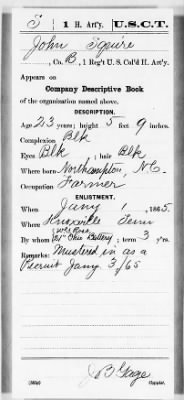 S | 1 H. Art'y. | U.S.C.T.
John Squire
, Co. B, 1 Reg't U. S. Col'd H. Art'y.
Appears on
Company Descriptive Book
of the organization named above.
DESCRIPTION.
Age 23 years; height 5 feet 9 inches.
Complexion Blk
Eyes Blk ; hair Blk
Where born Northampton, N.C.
Occupation Farmer
ENLISTMENT.
When Jany 1 , 1865.
Where Knoxville Tenn
Wm Rose
By whom 21st Ohio Battery ; term 3 y'rs.
Remarks: Mustered in as a
Recruit Jany 3/65
J B Gage
Copyist.